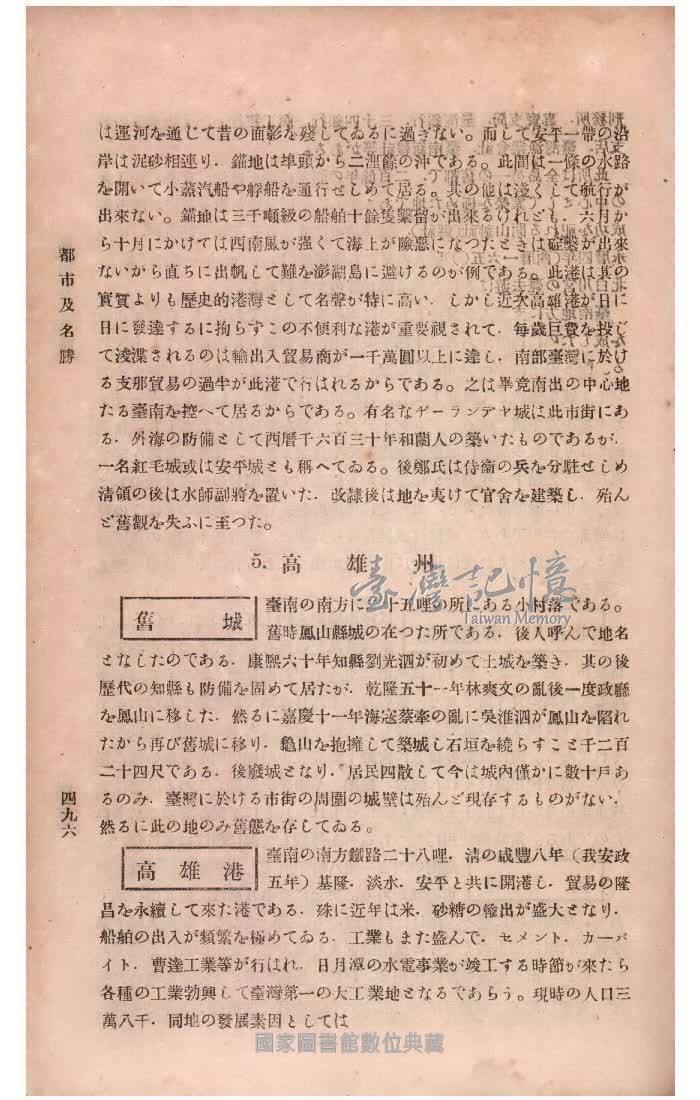 は運河を通じて昔の面影を殘してゐるに過ぎない。而して安平一帶の沿
岸は泥砂相連り．錨地は埠頭から二浬餘の沖である。此間は一條の水路
を開いて小蒸汽船や艀船を通行せしめて居る。其の他は淺くして航行が
出來ない。錨地は三千噸級の船舶十餘隻繫留が出來るけれども．六月か
ら十月にかけては西南風が强くて海上が險惡になつたときは碇繫が出來
ないから直ちに出帆して難を澎湖島に避けるのが例である。此港は其の
實質よりも歷史的港灣として名聲が特に高い．しかし近次高雄港が日に
日に發達するに拘らずこの不便利な港が重要視されて．每歲巨費を投じ
て浚渫されるのは輸出入貿易商が一千萬圓以上に達し．南部臺灣に於け
る支那貿易の過半が此港で行はれるからである。之は畢竟南出の中心地
たる臺南を控へて居るからである。有名なゼーランヂヤ城は此市街にあ
る．外海の防備として西曆千六百三十年和蘭人の築いたものであるが．
一名紅毛城或は安平城とも稱へてゐる。後鄭氏は侍衞の兵を分駐せしめ
清領の後は水師副將を置いた．改隸後は地を夷けて官舍を建築し．殆ん
ど舊觀を失ふに至つた。
5. 高雄州
舊城
臺南の南方に二十五哩の所にある小村落である。
舊時鳳山縣城の在つた所である．後人呼んで地名
となしたのである．康熙六十年知縣劉光泗が初めて土城を築き．其の後
歷代の知縣も防備を固めて居たが．乾隆五十一年林爽文の亂後一度政廳
を鳳山に移した．然るに嘉慶十一年海寇蔡牽の亂に吳淮泗が鳳山を陷れ
たから再び舊城に移り．龜山を抱擁して築城し石垣を繞らすこと千二百
二十四尺である．後廢城となり．居民四散して今は城內僅かに數十戶あ
るのみ．臺灣に於ける市街の周圍の城壁は殆んど現存するものがない．
然るに此の地のみ舊態を存してゐる。
高雄港
臺南の南方鐵路二十八哩．清の咸豐八年（我安政
五年）基隆．淡水．安平と共に開港し．貿易の隆
昌を永續して來た港である．殊に近年は米．砂糖の輸出が盛大となり．
船舶の出入が頻繁を極めてゐる．工業もまた盛んで．セメント．カーバ
イト．曹達工業等が行はれ．日月潭の水電事業が竣工する時節が來たら
各種の工業勃興して臺灣第一の大工業地となるであらう。現時の人口三
萬八千．同地の發展素因としては
都市及名勝
四九六
臺灣記憶
Taiwan Memory
國家圖書館數位典藏